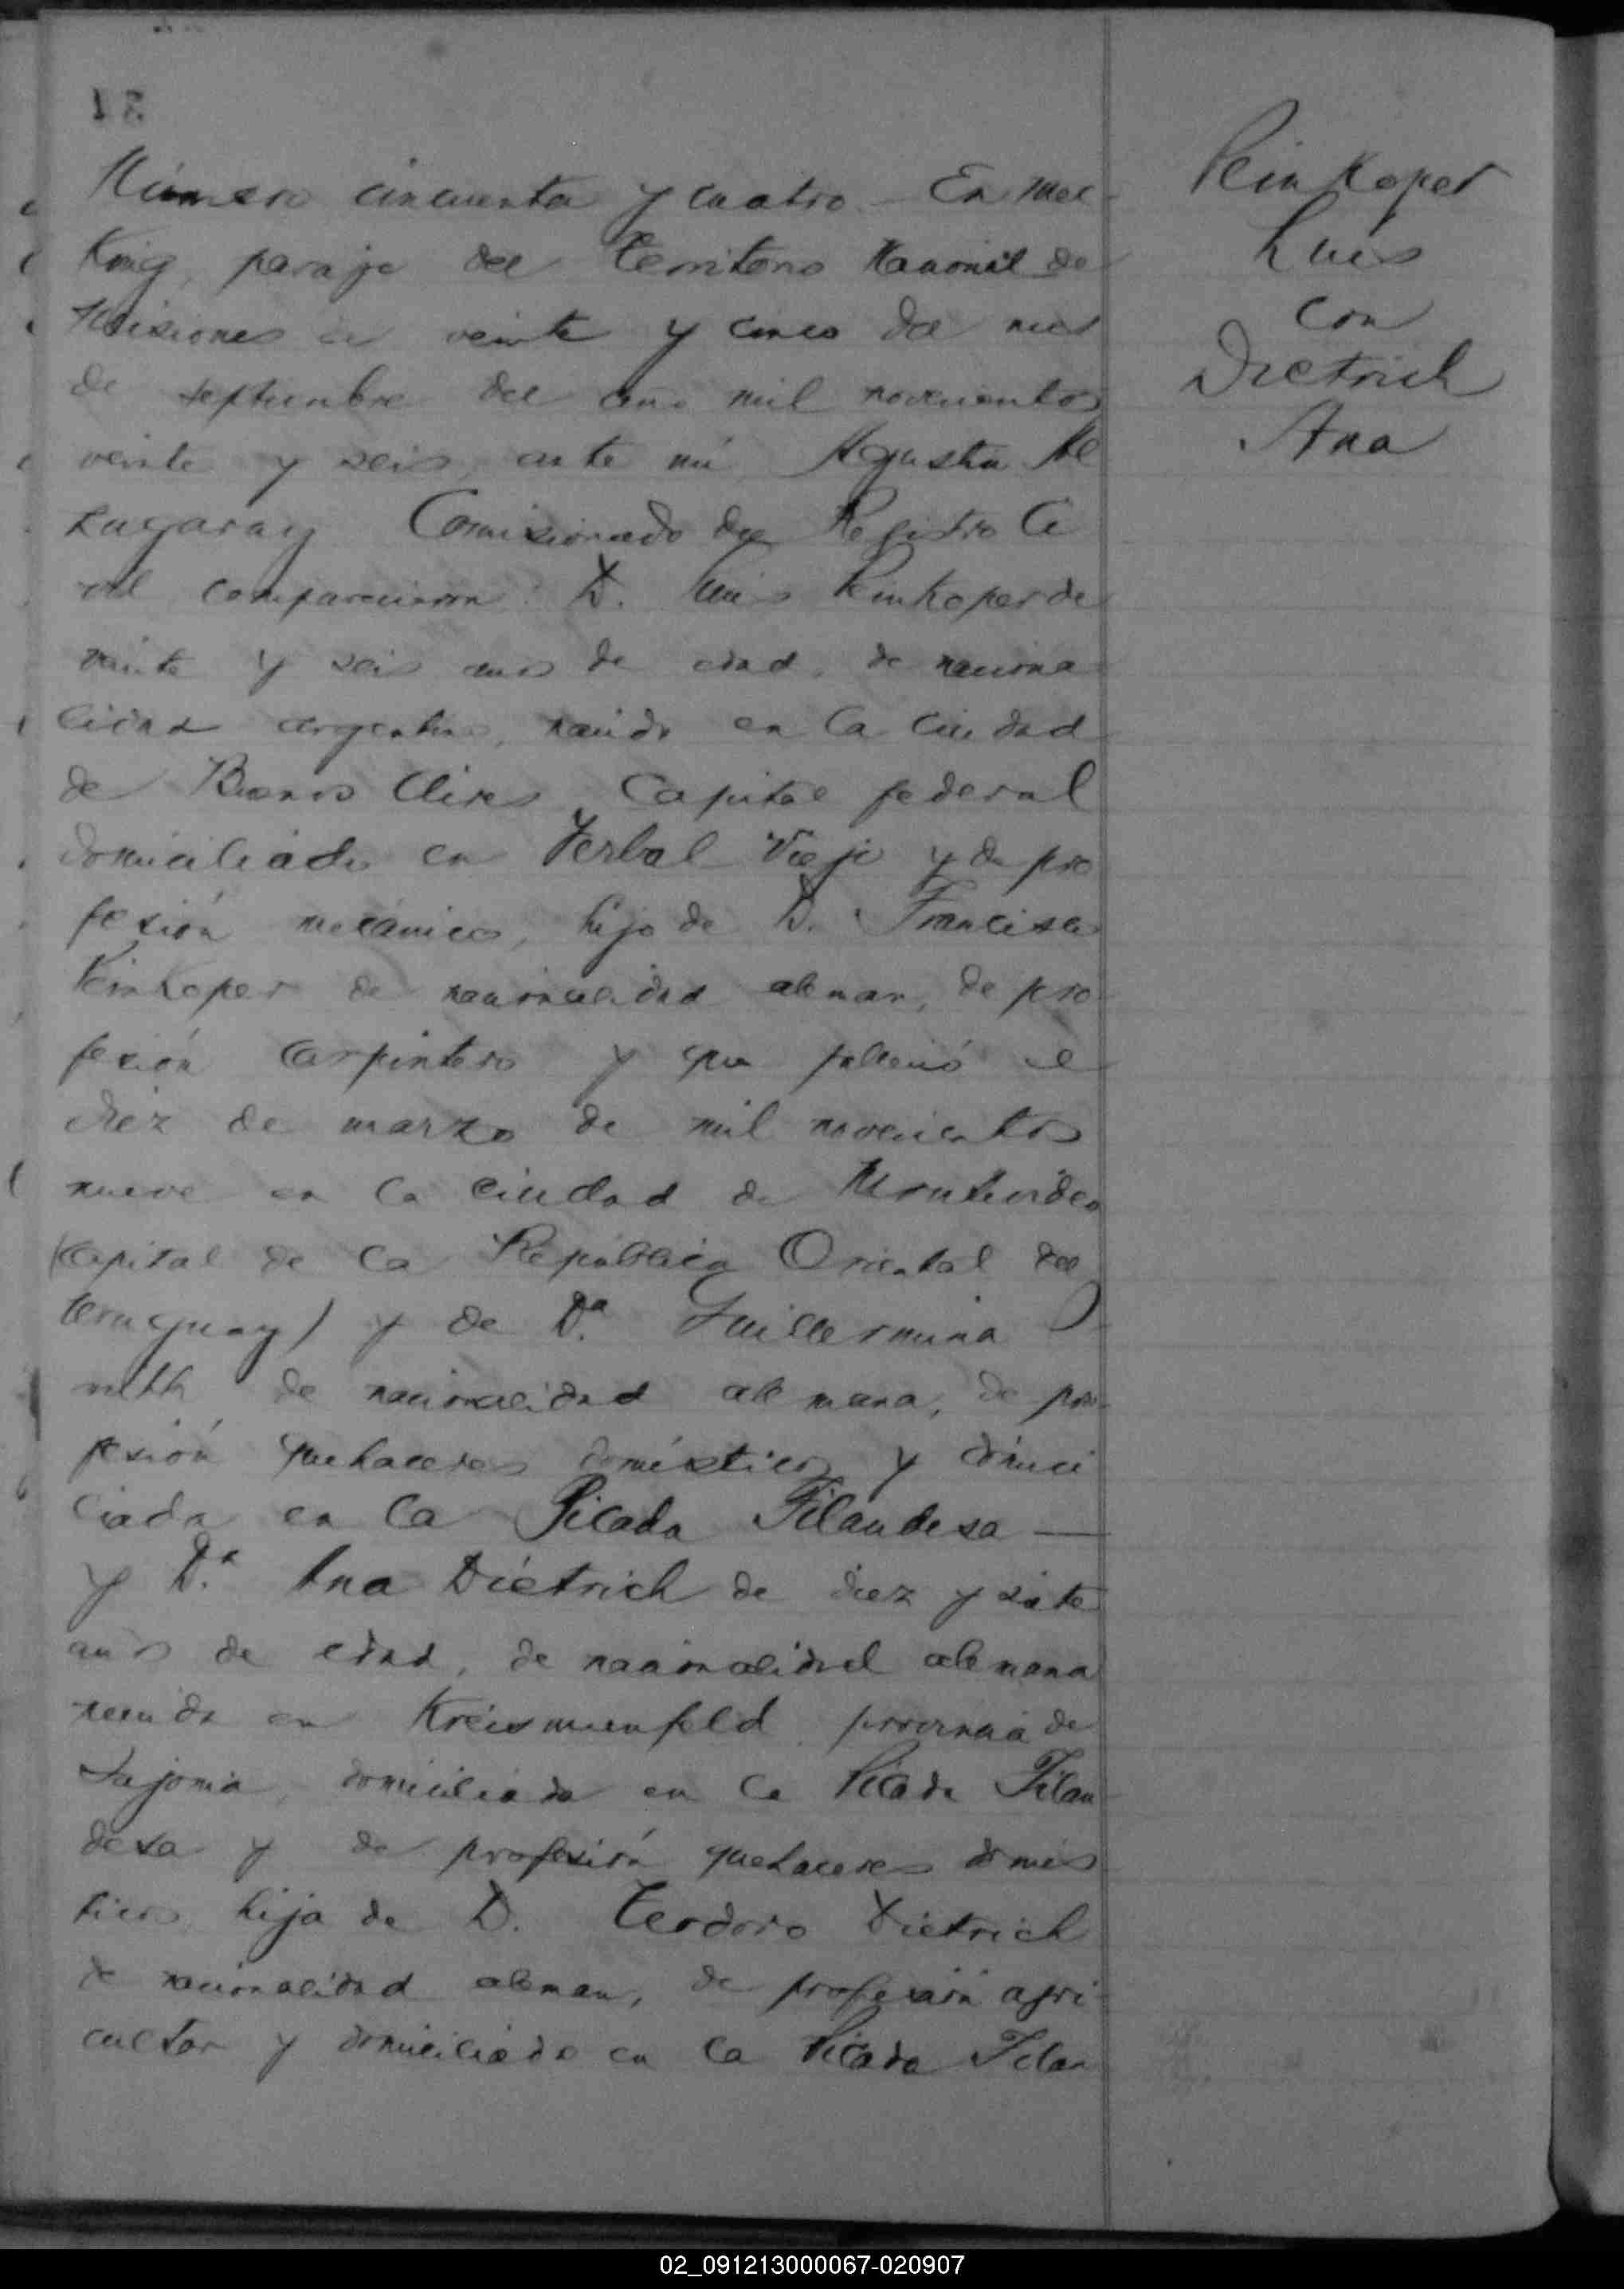 51
Número cincuenta y cuatro – En Mec-
King, paraje del Territorio Nacional de
Misiones a veinte y cinco del mes
de septiembre del año mil novecientos
veinte y seis, ante mí, Agustin
Comisionado del Registro Ci
vil comparecieron: D. Luis Peinkoper de
veinte y seis años de edad, de naciona
lidad argentino, nacido en la ciudad
de Buenos Aires, Capital federal
domiciliado en Yerbal Viejo y de pro
fesión mecánico, hijo de D. Francisco
Peinkoper de nacionalidad aleman, de pro-
fesión carpintero y que falleció el
diez de marzo de mil novecientos
nueve en la ciudad de Montevideo
(capital de la República Oriental del
Uruguay) y de Da. Guillermina
de nacionalidad alemana, de pro-
fesión quehaceres domésticos y domici
liada en la Picada Filandesa —
y Da. Ana Dietrich de diez y siete
años de edad, de nacionalidad alemana
nacida en Kreismenfeld provincia de
Sajonia, domiciliada en la Picada Filan
desa y de profesión quehaceres domés
ticos, hija de D. Teodoro Dietrich
de nacionalidad aleman, de profesión agri-
cultor y domiciliado en la Picada Filan
Peinkoper
Luis
con
Dietrich
Ana
02_091213000067-020907